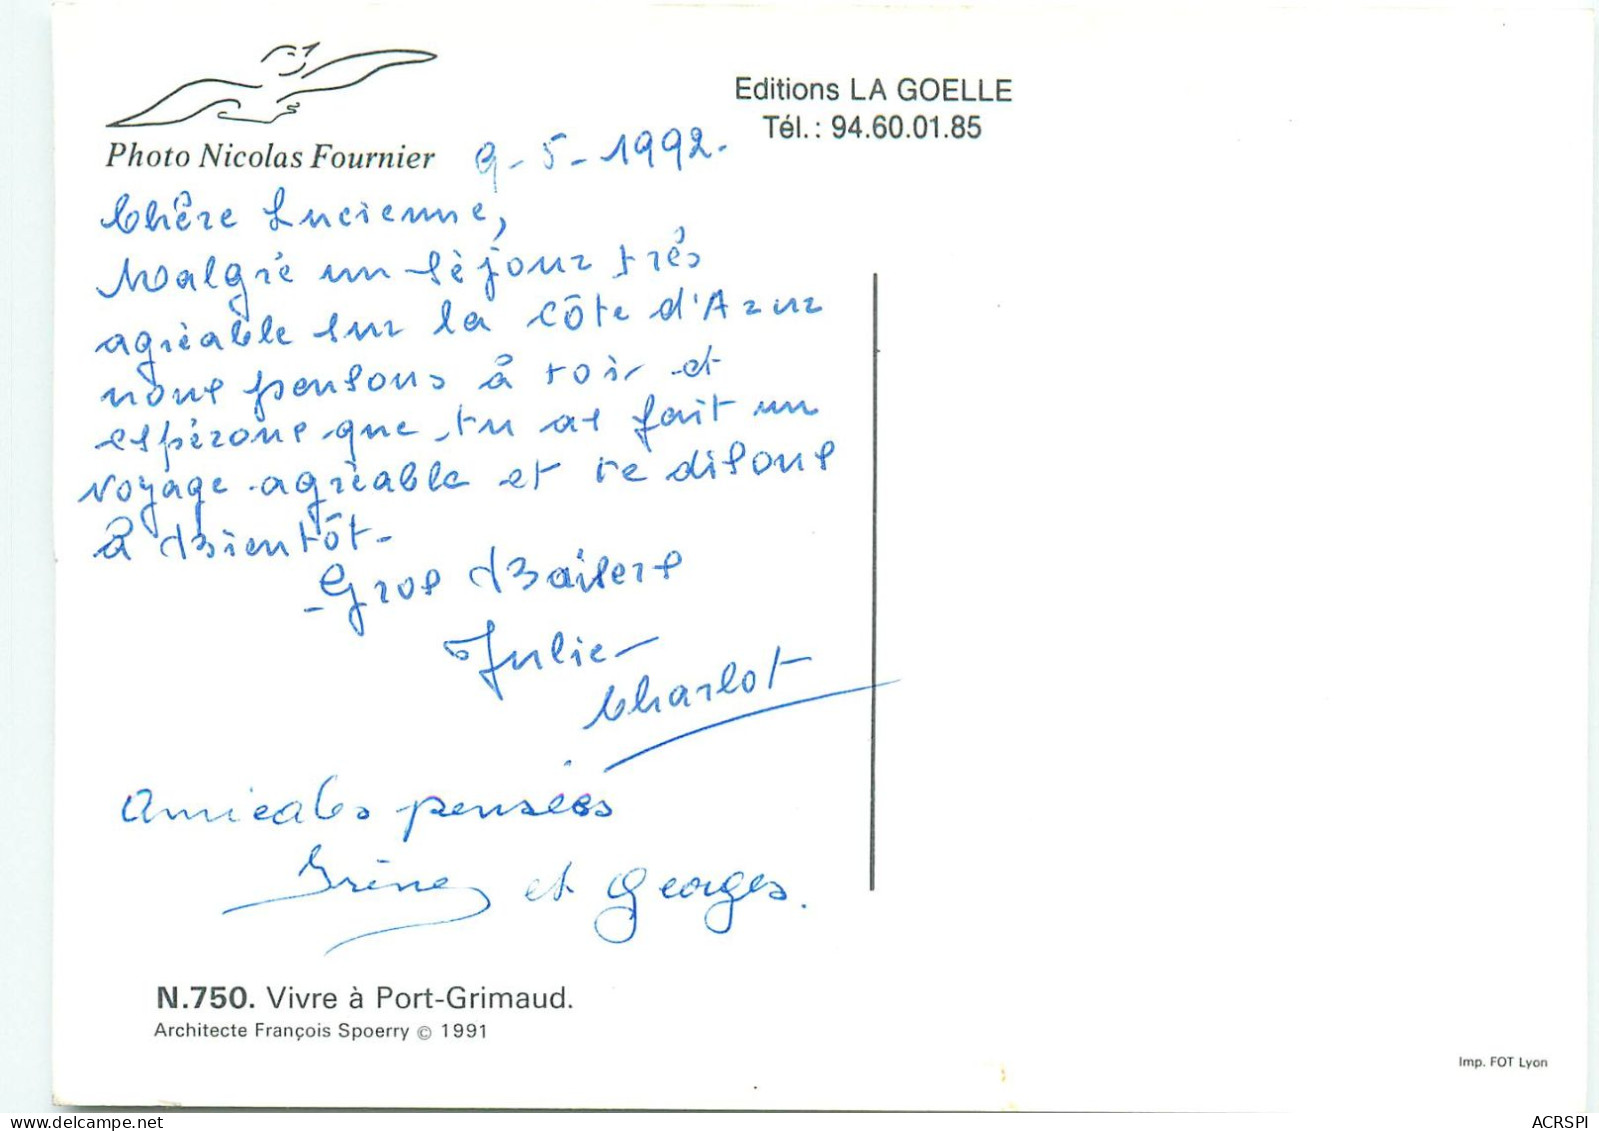 Editions LA GOELLE
Tél.: 94.60.01.85
Photo Nicolas Fournier
9-5-1992.
Chère Lucienne,
Malgré un séjour très
agréable sur la côte d'Azur
nous pensons à toi et
espérons que tu as fait un
voyage agréable et te disons
à Bientôt-
-Gros Baisers
Julie-
Charlot
Amicales pensées
Irène et Georges.
N.750. Vivre à Port-Grimaud.
Architecte François Spoerry © 1991
Imp. FOT Lyon
ACRSPI